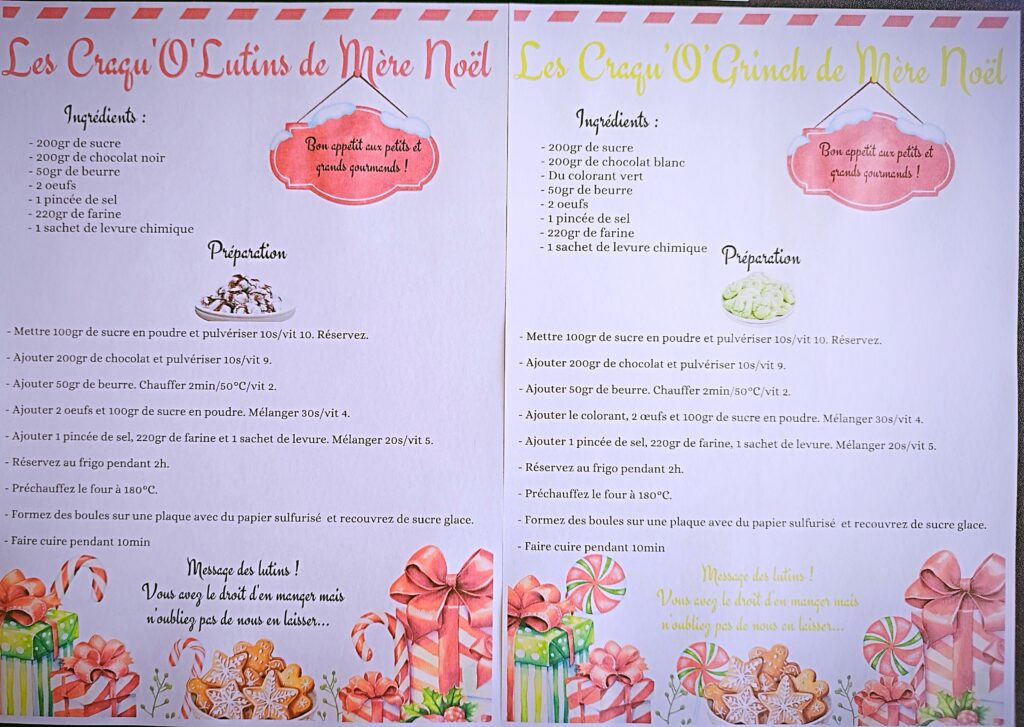 Les Craqu'O'Lutins de Mère Noël
Ingrédients :
- 200gr de sucre
- 200gr de chocolat noir
- 50gr de beurre
- 2 oeufs
- 1 pincée de sel
- 220gr de farine
- 1 sachet de levure chimique
Bon appétit aux petits et
grands gourmands !
Préparation
- Mettre 100gr de sucre en poudre et pulvériser 10s/vit 10. Réservez.
- Ajouter 200gr de chocolat et pulvériser 10s/vit 9.
- Ajouter 50gr de beurre. Chauffer 2min/50°C/vit 2.
- Ajouter 2 oeufs et 100gr de sucre en poudre. Mélanger 30s/vit 4.
- Ajouter 1 pincée de sel, 220gr de farine et 1 sachet de levure. Mélanger 20s/vit 5.
- Réservez au frigo pendant 2h.
- Préchauffez le four à 180°C.
- Formez des boules sur une plaque avec du papier sulfurisé et recouvrez de sucre glace.
- Faire cuire pendant 10min
Message des lutins !
Vous avez le droit d'en manger mais
n'oubliez pas de nous en laisser...
Les Craqu'O'Grinch de Mère Noël
Ingrédients :
- 200gr de sucre
- 200gr de chocolat blanc
- Du colorant vert
- 50gr de beurre
- 2 oeufs
- 1 pincée de sel
- 220gr de farine
- 1 sachet de levure chimique
Bon appétit aux petits et
grands gourmands !
Préparation
- Mettre 100gr de sucre en poudre et pulvériser 10s/vit 10. Réservez.
- Ajouter 200gr de chocolat et pulvériser 10s/vit 9.
- Ajouter 50gr de beurre. Chauffer 2min/50°C/vit 2.
- Ajouter le colorant, 2 œufs et 100gr de sucre en poudre. Mélanger 30s/vit 4.
- Ajouter 1 pincée de sel, 220gr de farine, 1 sachet de levure. Mélanger 20s/vit 5.
- Réservez au frigo pendant 2h.
- Préchauffez le four à 180°C.
- Formez des boules sur une plaque avec du papier sulfurisé et recouvrez de sucre glace.
- Faire cuire pendant 10min
Message des lutins !
Vous avez le droit d'en manger mais
n'oubliez pas de nous en laisser...